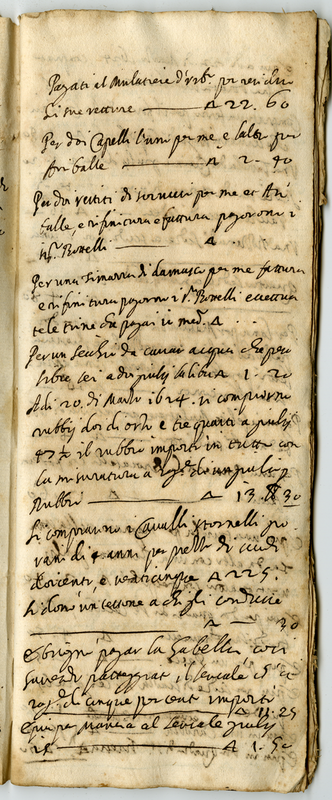 Pagati al Mulatiere d'Urb.o per residuo
di sue vetture ——— ∆ 22. 60
Per doi Capelli l'uno per me e l'altro per
∆ 2. 40
Per doi vestiti di per me et
e rifinitura e fattura pagorono i
SS.ri Roselli ——— ∆
Per una Zimarra di damasco per me fattura
e rifinitura pagorno i S.ri Roselli eccettua
te le trine che pagai io med.o ∆
Per un secchio da cavar acqua che pesa
libre sei a doi giulij la libra ∆ 1. 20
Adi 20. di Marzo 1624. si comprorno
rubbij doi di orzo e tre quarti a giulij
47½ il rubbio importa in tutto con
la misuratura a di un giulio p
Rubbio ——— ∆ 13. 30
Si comprorno i Cavalli stornelli gio
vani di 4 anni per prezzo di scudi
doicento e vinticinque ∆ 225.
Si donò un testone a chi gli condusse
∆ — 30
E bisognò pagar la Gabella
il sensale
di cinque per cento importò
∆ 11. 25
E più per mancia al sensale giulij
15 ——— ∆ 1. 50